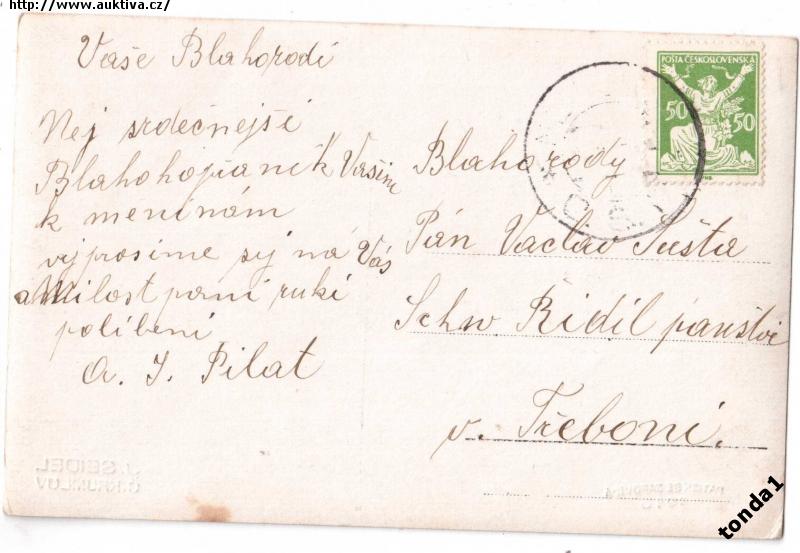 http://www.auktiva.cz/
Vaše Blahorodí
Nej srdečnejší
Vašim
k meninám
vyprosíme sy na Vás
a Milost paní rukí
políbení
A. J. Pilat
POSTA ČESKOSLOVENSKÁ
50 50
Blahorody
Pán Vaclav Šusta
Schw Řidíl panství
v. Třeboni.
J. SEIDEL
Č. KRUMLOV
tonda1